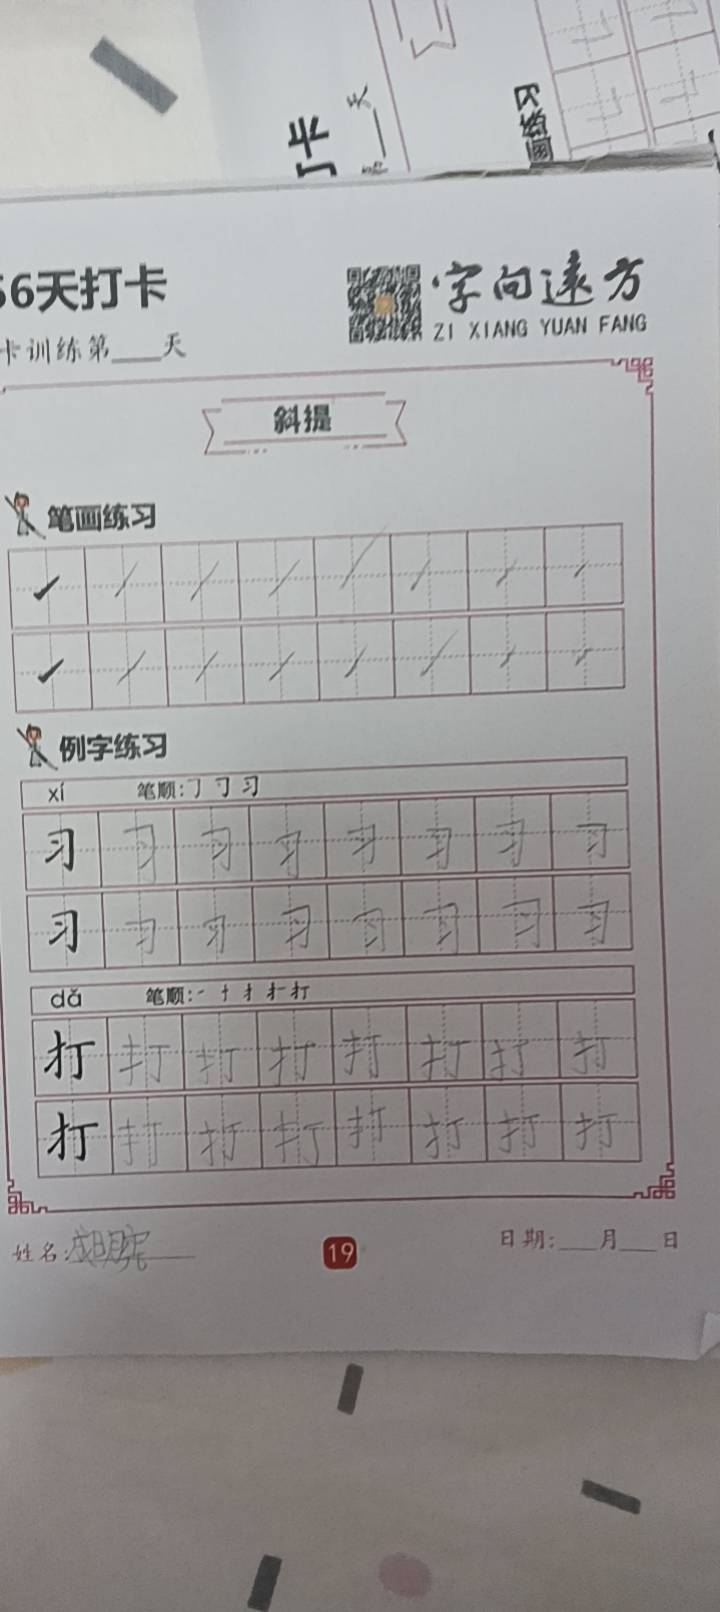 卡
天
区绘画
66天打卡
字向远方
ZI XIANG YUAN FANG
卡训练第____天
斜提
笔画练习
例字练习
xí 笔顺:
习 习 习 习 习 习 习 习
习 习 习 习 习 习 习 习
dǎ 笔顺:
打 打 打 打 打 打 打 打
打 打 打 打 打 打 打 打
姓名:
19
日期:____月____日